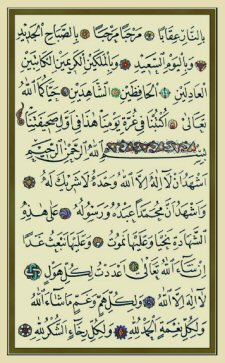 بِالنَّارِ عِقَابًا مَرْحَبًا مَرْحَبًا بِالصَّبَاحِ الْجَدِيدِ
وَبِالْيَوْمِ السَّعِيدِ وَبِالْمَلَكَيْنِ الْكَرِيمَيْنِ الْكَاتِبَيْنِ
الْعَادِلَيْنِ الْحَافِظَيْنِ الشَّاهِدَيْنِ حَيَّاكُمَا اللّٰهُ
تَعَالَى اُكْتُبَا فِي غُرَّةِ يَوْمِنَا هٰذَا فِي اَوَّلِ صَحِيفَتِنَا
بِسْمِ اللّٰهِ الرَّحْمٰنِ الرَّحِيمِ
اَشْهَدُ اَنْ لَا اِلٰهَ اِلَّا اللّٰهُ وَحْدَهُ لَا شَرِيكَ لَهُ
وَاَشْهَدُ اَنَّ مُحَمَّدًا عَبْدُهُ وَرَسُولُهُ عَلَى هٰذِهِ
الشَّهَادَةِ نَحْيَا وَعَلَيْهَا نَمُوتُ وَعَلَيْهَا نُبْعَثُ غَدًا
اِنْ شَاءَ اللّٰهُ تَعَالَى اَعْدَدْتُ لِكُلِّ هَوْلٍ
لَا اِلٰهَ اِلَّا اللّٰهُ وَلِكُلِّ هَمٍّ وَغَمٍّ مَا شَاءَ اللّٰهُ
وَلِكُلِّ نِعْمَةٍ اَلْحَمْدُ لِلّٰهِ وَلِكُلِّ رَخَاءٍ اَلشُّكْرُ لِلّٰهِ